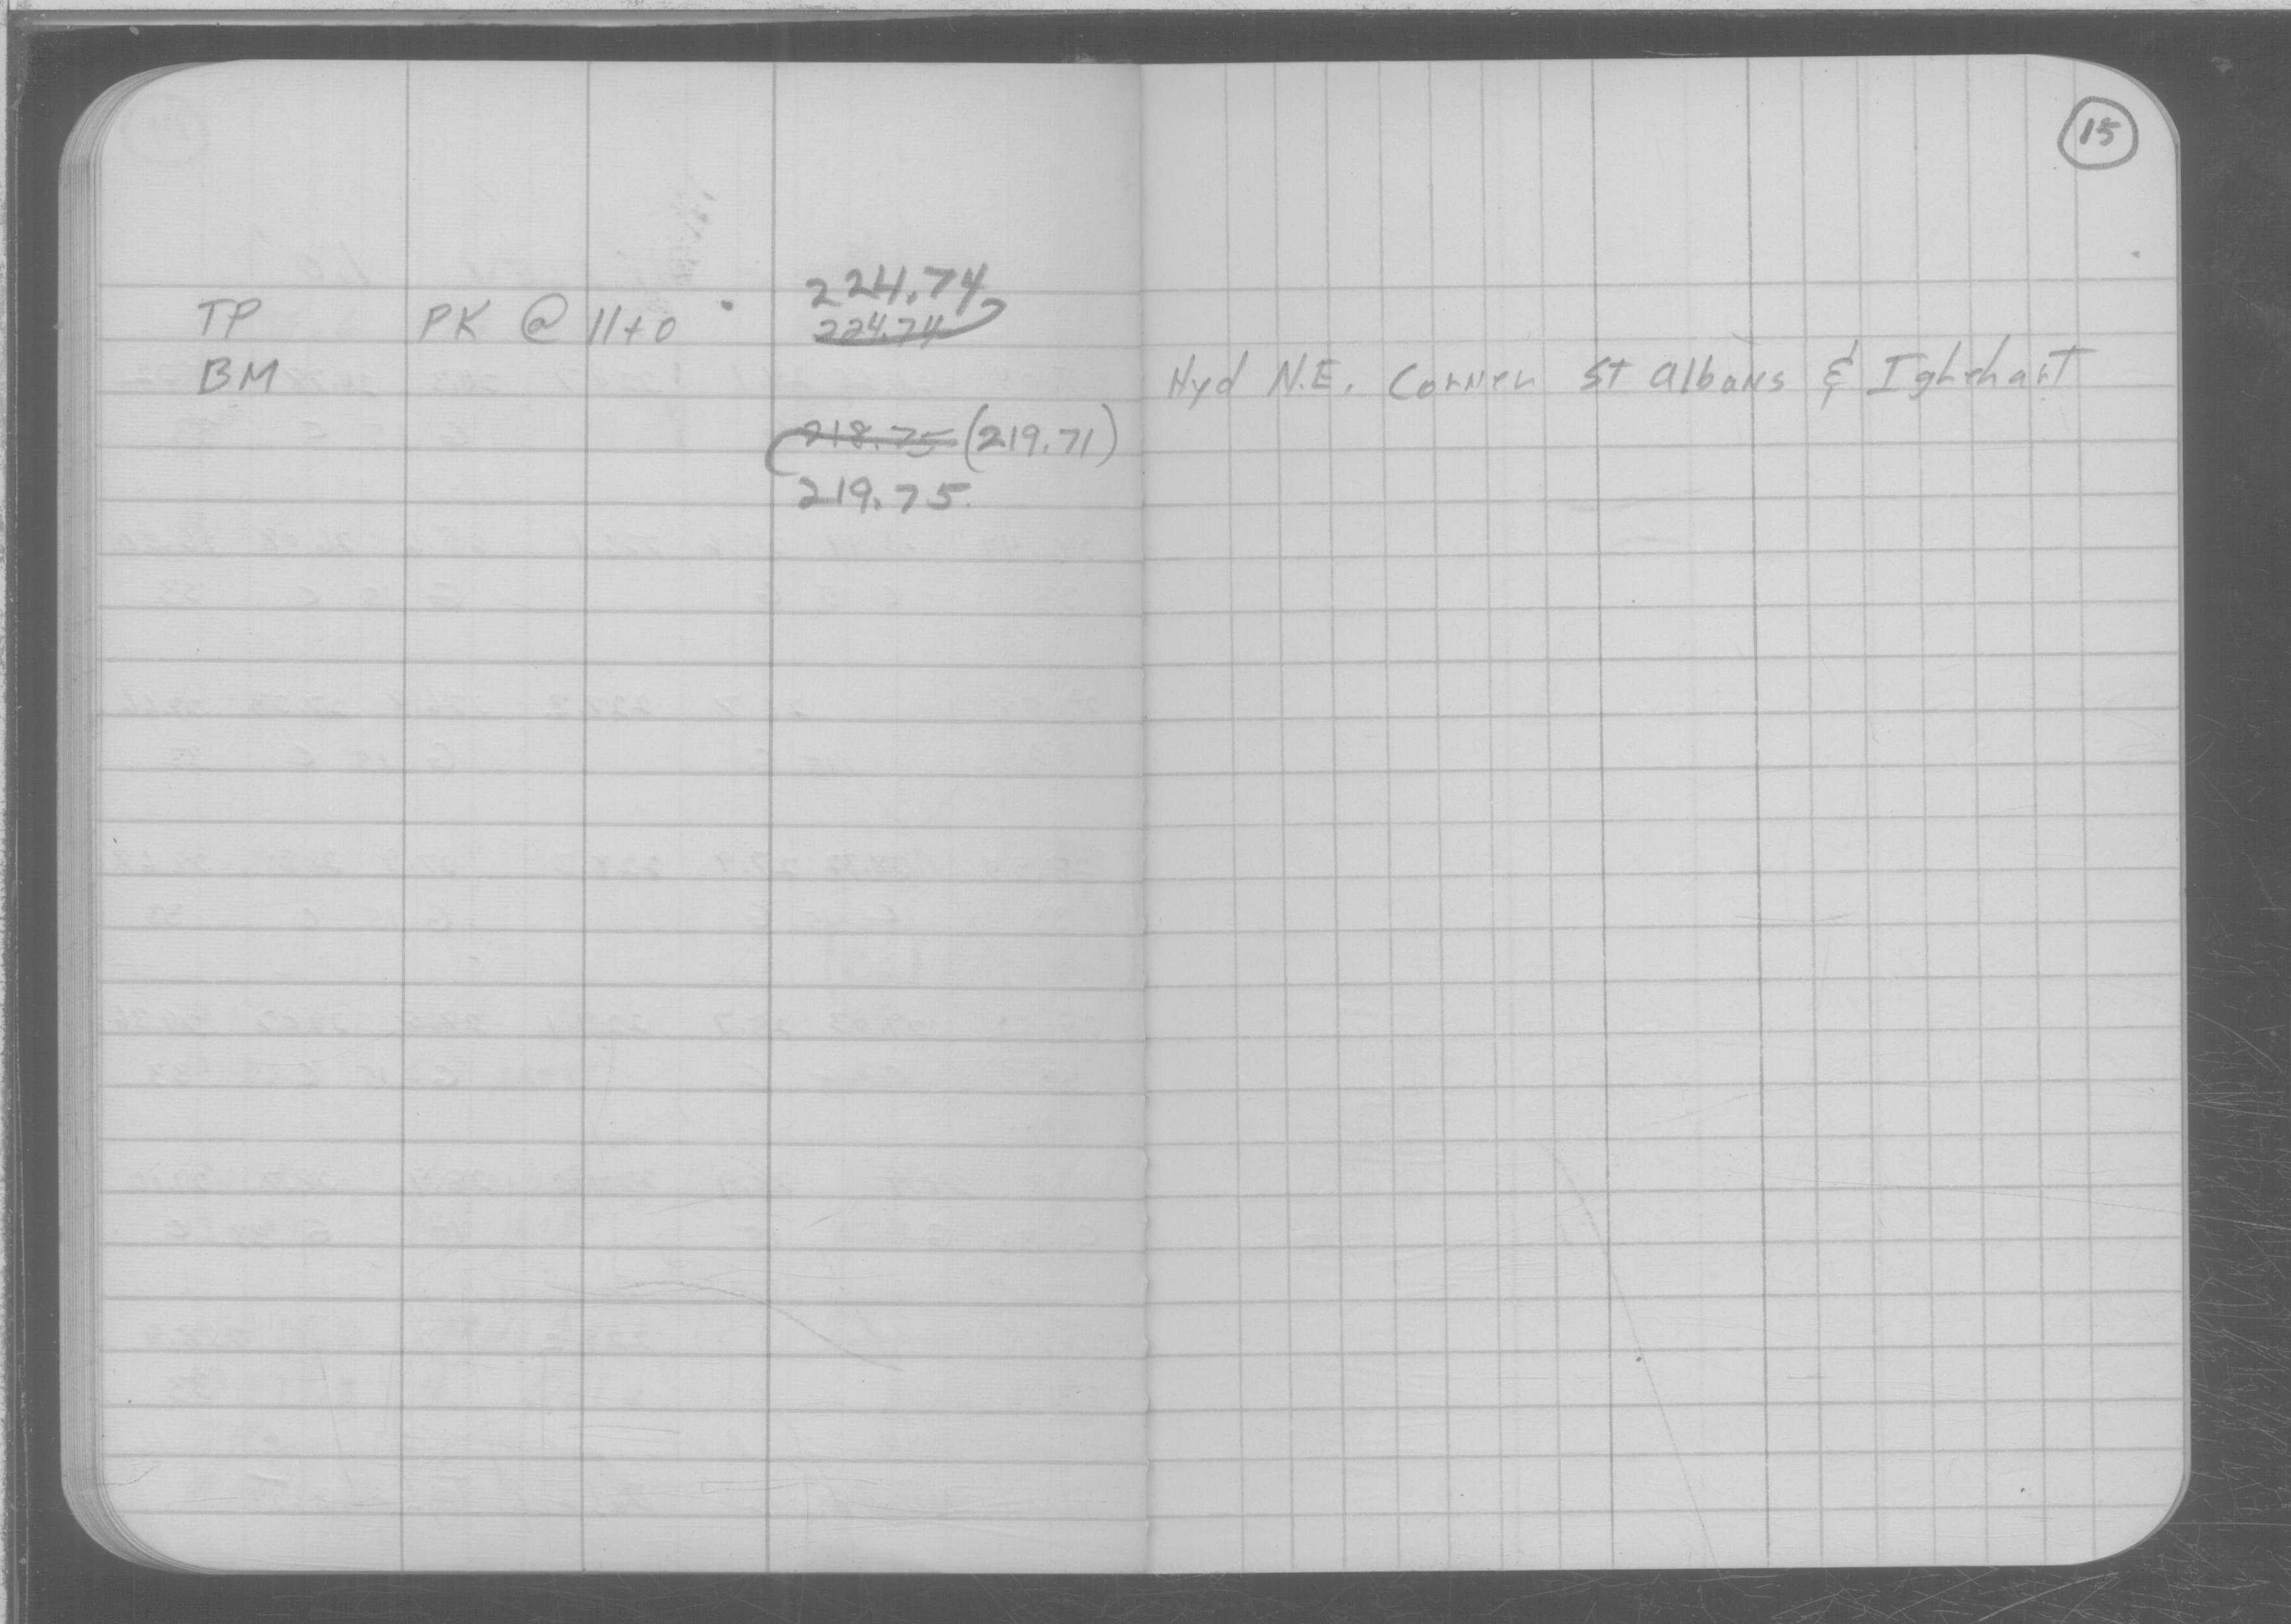 15
224.74
TP PK @ 11+0 224.74
BM Hyd N.E. Corner St Albans & Iglehart
218.75 (219.71)
219.75